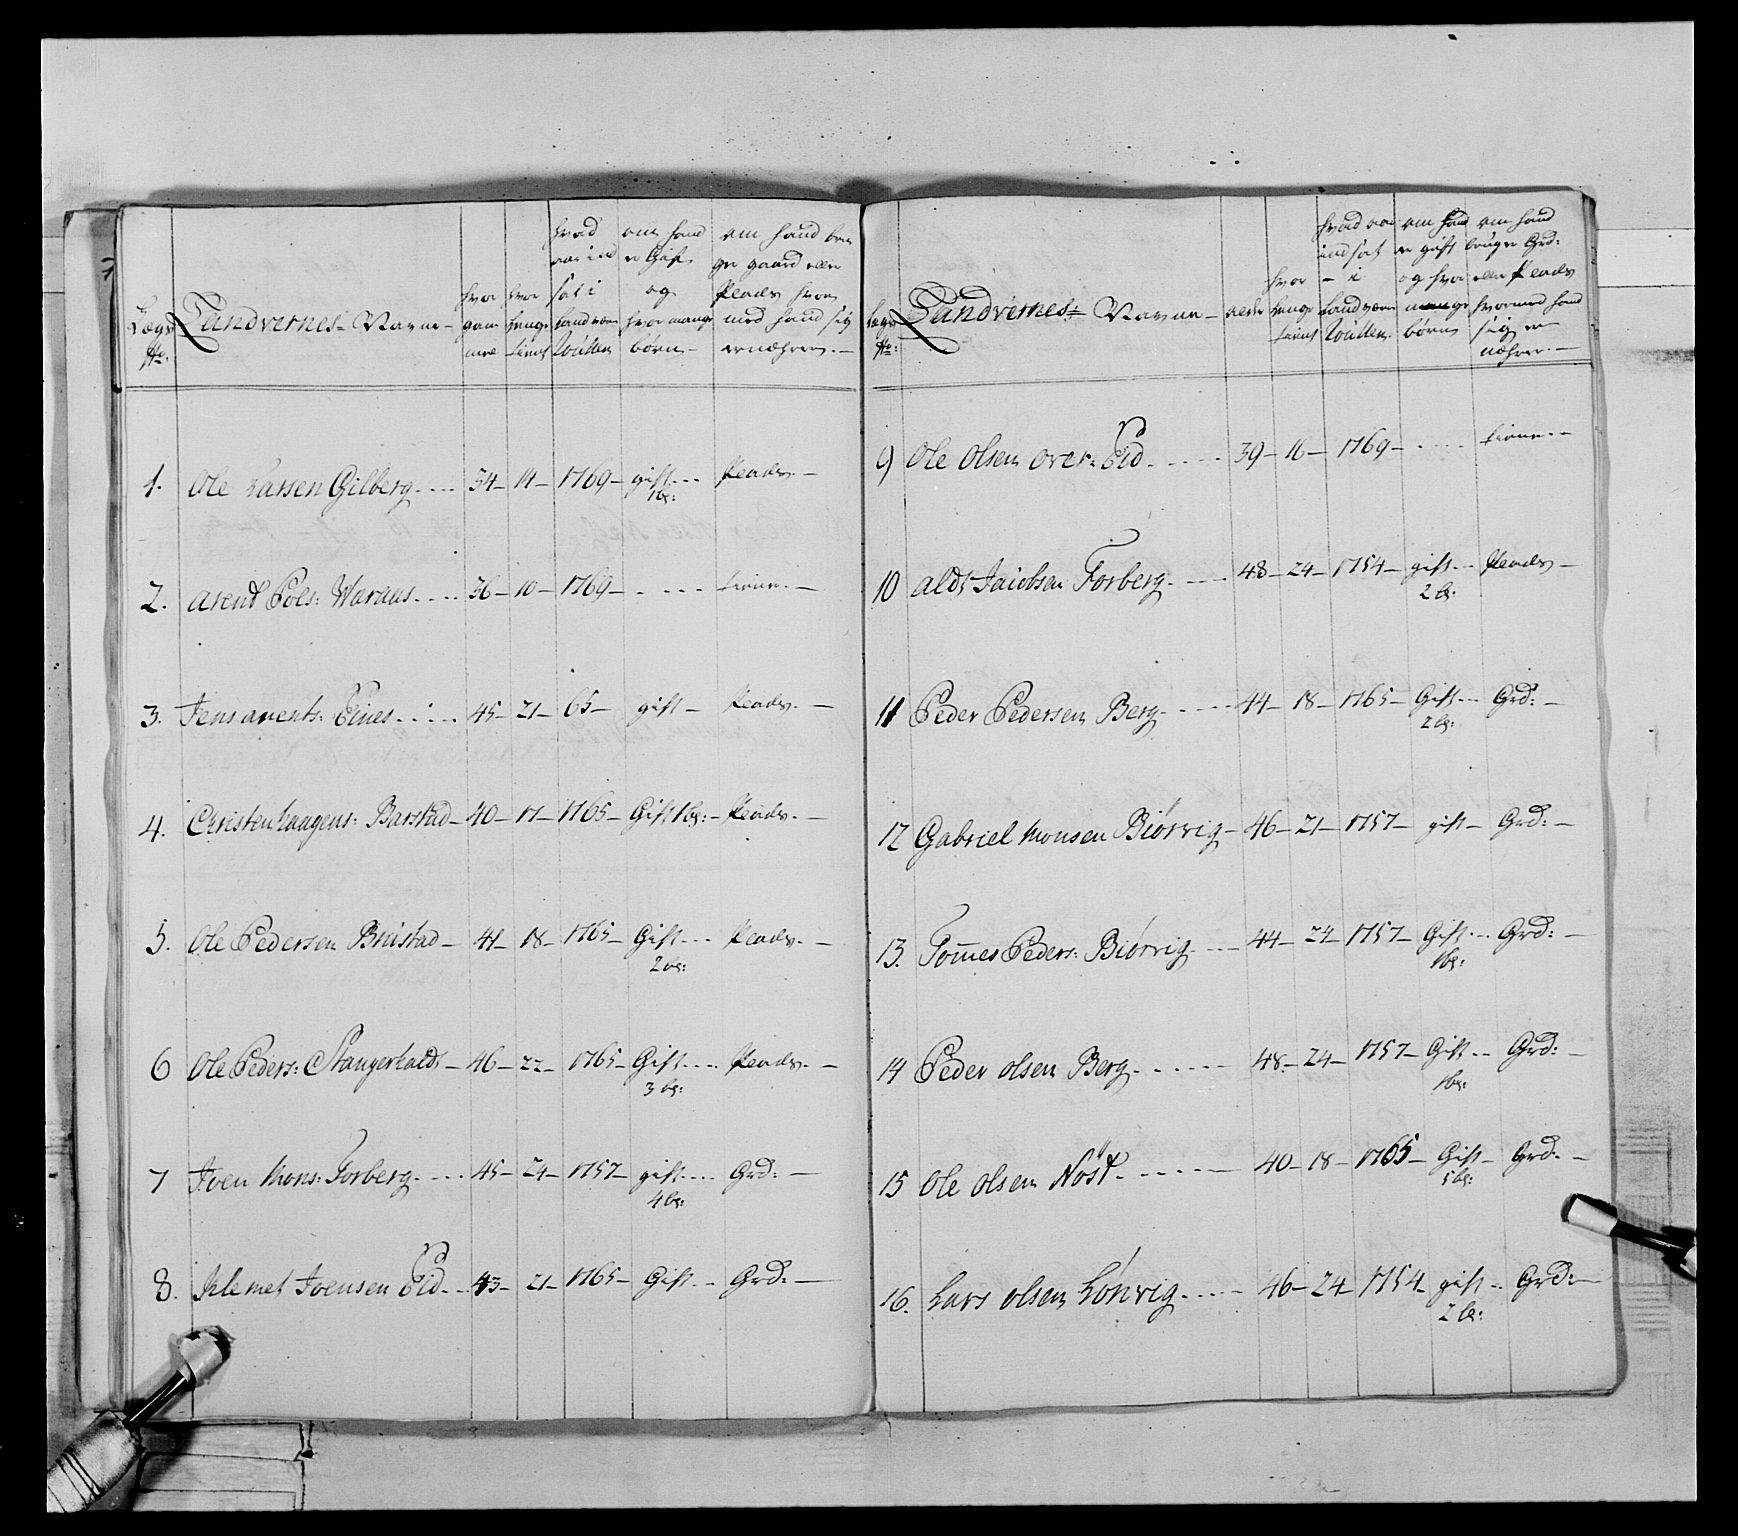 Lægs No: Landvernes Navne hvor gammel hvor længe tient hvad aar ind sat i Landværn Roullen om hand er Gift og hvor mange børn om hand bruger gaard eller Plads hvor med hand sig ernærer
1. Ole Larsen Gilberg 34 14 1769 gift Plads
1 b:
2. Arent Pols: Waraas 36 10 1769 tiener
3. Jens arents: Eines 45 21 65 gift Plads
4. Christen haagens: Barstad 40 17 1765 Gift 1 b: Plads
5. Ole Pedersen Brustad 41 18 1765 Gift Plads
2 b:
6 Ole Peders: Stangerholdt 46 22 1765 Gift Plads
3 b:
7 Joen Mons: Forberg 45 24 1757 gift Grd:
4 b:
8. Klemet Joensen Eid 43 21 1765 Gift Grd:
Lægs No: Landvernes Navne alder hvor længe tient hvad aar ind sat i Landværn Roullen om hand er gift og hvor mange børn om hand bruger Grd: eller Plads hvormed hand sig er næhrer
9 Ole Olsen over: Eid 39 16 1769 tiener
10 Jacobsen Forberg 48 24 1754 gift Plads
2 b:
11 Peder Pedersen Berg 44 18 1765 Gift Grd:
2 b:
12 Gabriel Monsen Biørvig 46 21 1757 gift Grd:
13. Tomes Peders: Biørvig 44 24 1757 Gift Grd:
1 b:
14 Peder olsen Berg 48 24 1757 Gift Grd:
1 b:
15 Ole olsen Nøst 40 18 1765 Gift Grd:
5 b:
16. Lars olsen Lønvig 46 24 1754 gift Grd:
2 b: